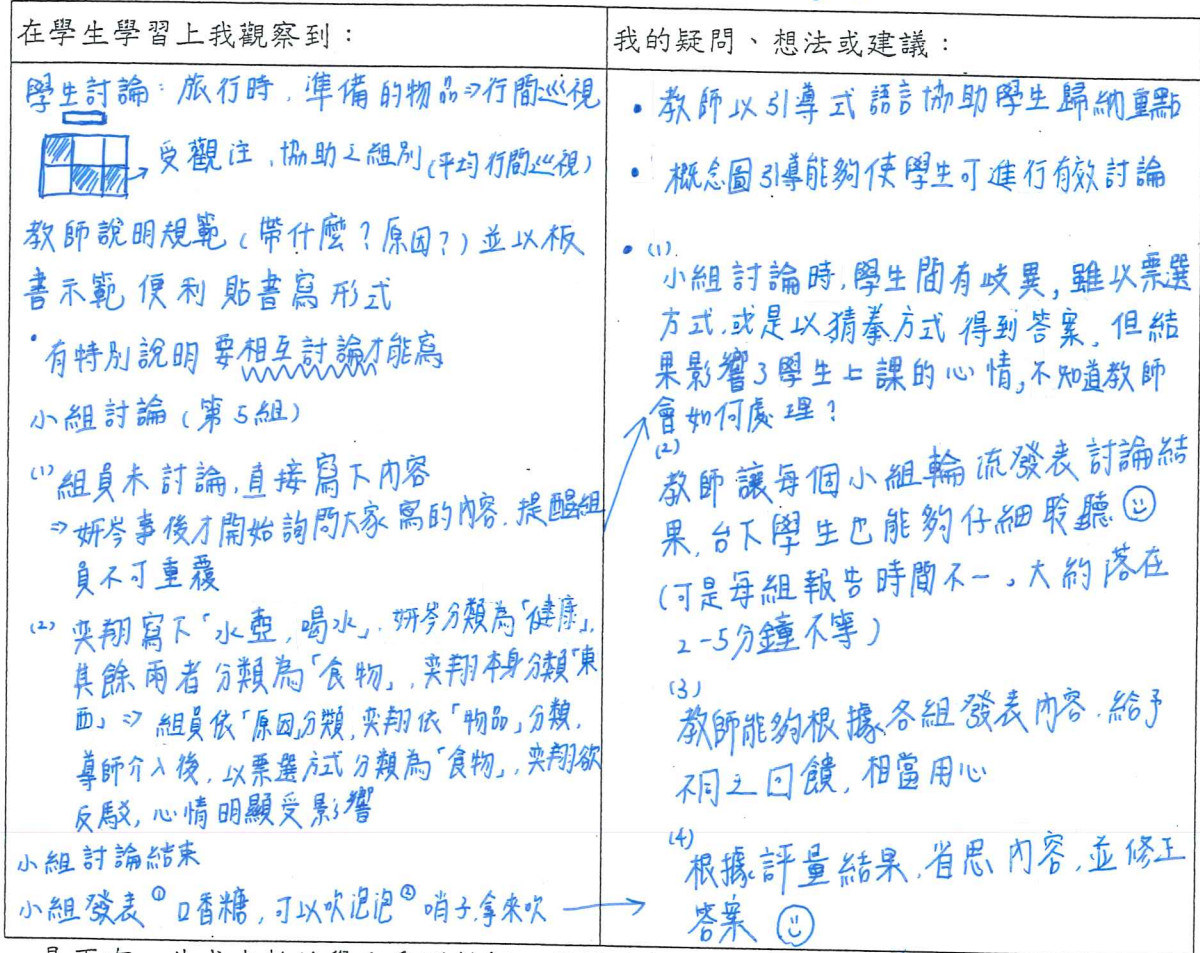 在學生學習上我觀察到：
學生討論：旅行時，準備的物品⇒行間巡視
受觀注，協助之組別(平均行間巡視)
教師說明規範（帶什麼？原因？）並以板
書示範便利貼書寫形式
•有特別說明要相互討論才能寫
小組討論（第5組）
(1)組員未討論，直接寫下內容
⇒妍岑事後才開始詢問大家寫的內容，提醒組
員不可重覆
(2)奕翔寫下「水壺，喝水」，妍岑分類為「健康」，
其餘兩者分類為「食物」，奕翔本身分類「東
西」⇒組員依「原因」分類，奕翔依「物品」分類，
導師介入後，以票選方式分類為「食物」，奕翔欲
反駁，心情明顯受影響
小組討論結束
小組發表①口香糖，可以吹泡泡②哨子，拿來吹
我的疑問、想法或建議：
•教師以引導式語言協助學生歸納重點
•概念圖引導能夠使學生可進行有效討論
•(1).
小組討論時，學生間有歧異，雖以票選
方式，或是以猜拳方式得到答案，但結
果影響了學生上課的心情，不知道教師
會如何處理？
(2)
教師讓每個小組輪流發表討論結
果，台下學生也能夠仔細聆聽
(可是每組報告時間不一，大約落在
2-5分鐘不等）
(3)
教師能夠根據各組發表內容，給予
不同之回饋，相當用心
(4)
根據評量結果，省思內容，並修正
答案